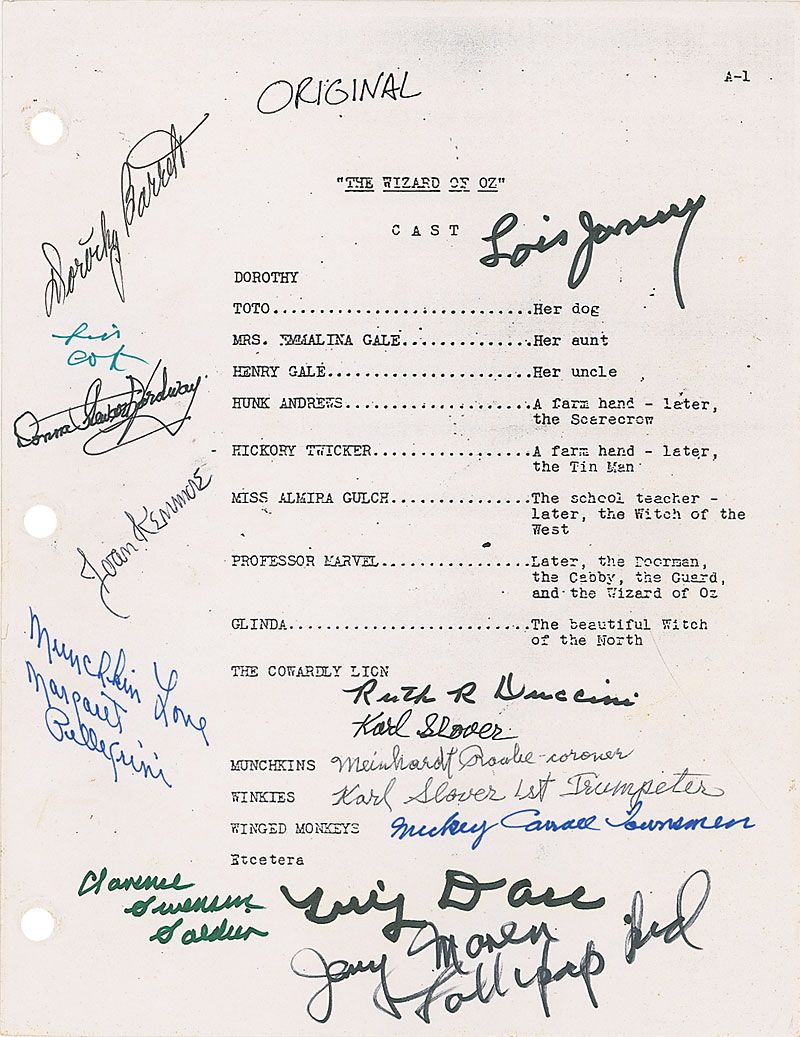 ORIGINAL
A-1
Dorothy Barrett
"THE WIZARD OF OZ"
CAST
Lois January
DOROTHY
TOTO..........................Her dog
MRS. EMMALINA GALE............Her aunt
HENRY GALE....................Her uncle
HUNK ANDREWS..................A farm hand - later,
the Scarecrow
Donna Stewart Hardway
HICKORY TWICKER...............A farm hand - later,
the Tin Man
MISS ALMIRA GULCH.............The school teacher -
later, the Witch of the
West
Joan Kenmore
PROFESSOR MARVEL..............Later, the Doorman,
the Cabby, the Guard,
and the Wizard of Oz
GLINDA........................The beautiful Witch
of the North
Munchkin Love
Margaret
Pellegrini
THE COWARDLY LION
Ruth R Duccini
Karl Slover
MUNCHKINS Meinhardt Raabe-coroner
WINKIES Karl Slover 1st Trumpeter
WINGED MONKEYS Mickey Carroll Townsmen
Etcetera
Clarence
Swensen
Soldier
Jerry Maren
Lollipop kid